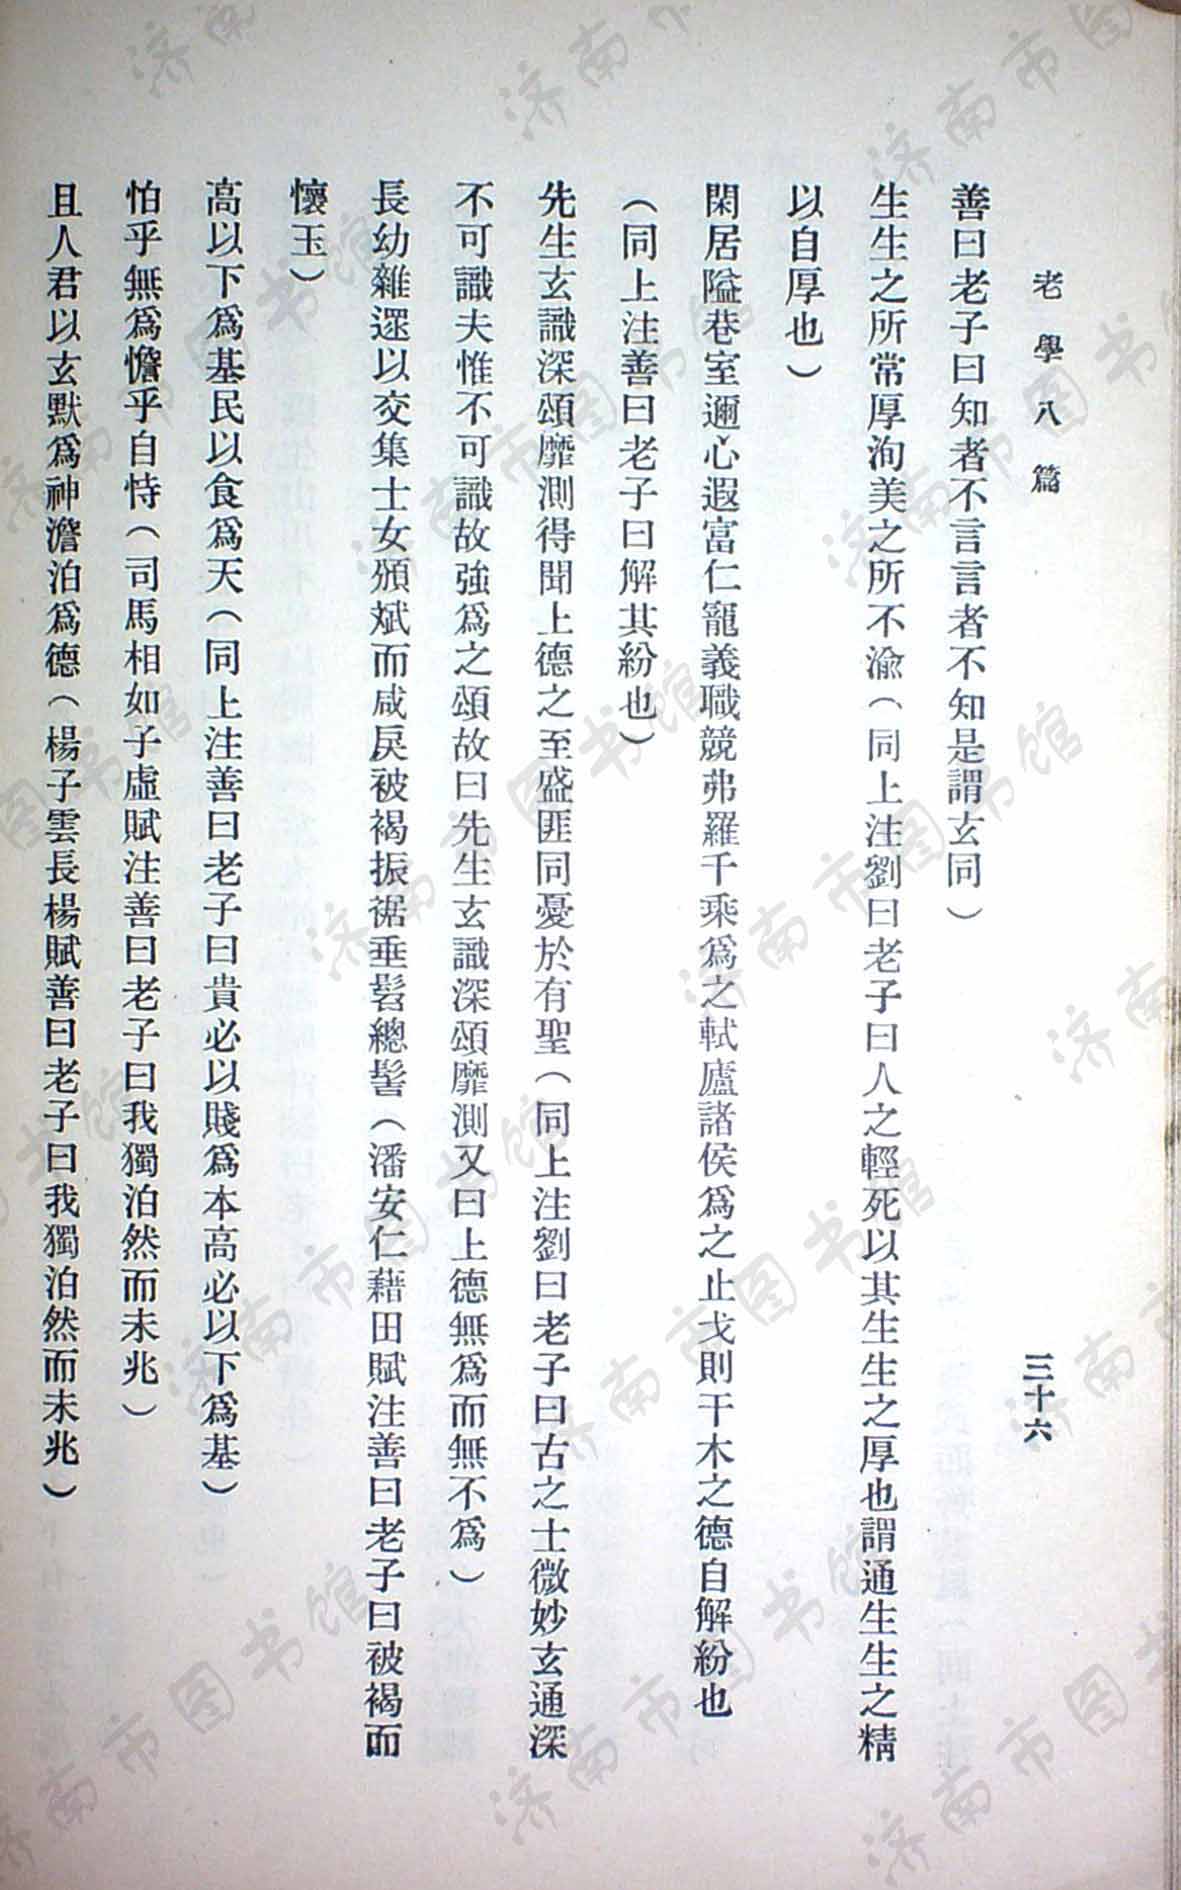 老學八篇
三十六
善曰老子曰知者不言言者不知是謂玄同）
生生之所常厚洵美之所不渝（同上注劉曰老子曰人之輕死以其生生之厚也謂通生生之精
以自厚也）
閑居隘巷室邇心遐富仁寵義職競弗羅千乘爲之軾廬諸侯爲之止戈則干木之德自解紛也
（同上注善曰老子曰解其紛也）
先生玄識深頌靡測得聞上德之至盛匪同憂於有聖（同上注劉曰老子曰古之士微妙玄通深
不可識夫惟不可識故強爲之頌故曰先生玄識深頌靡測又曰上德無爲而無不爲）
長幼雜遝以交集士女頒斌而咸戾被褐振裾垂髫總髻（潘安仁藉田賦注善曰老子曰被褐而
懷玉）
高以下爲基民以食爲天（同上注善曰老子曰貴必以賤爲本高必以下爲基）
怕乎無爲憺乎自恃（司馬相如子虛賦注善曰老子曰我獨泊然而未兆）
且人君以玄默爲神澹泊爲德（楊子雲長楊賦善曰老子曰我獨泊然而未兆）
济南市图书馆